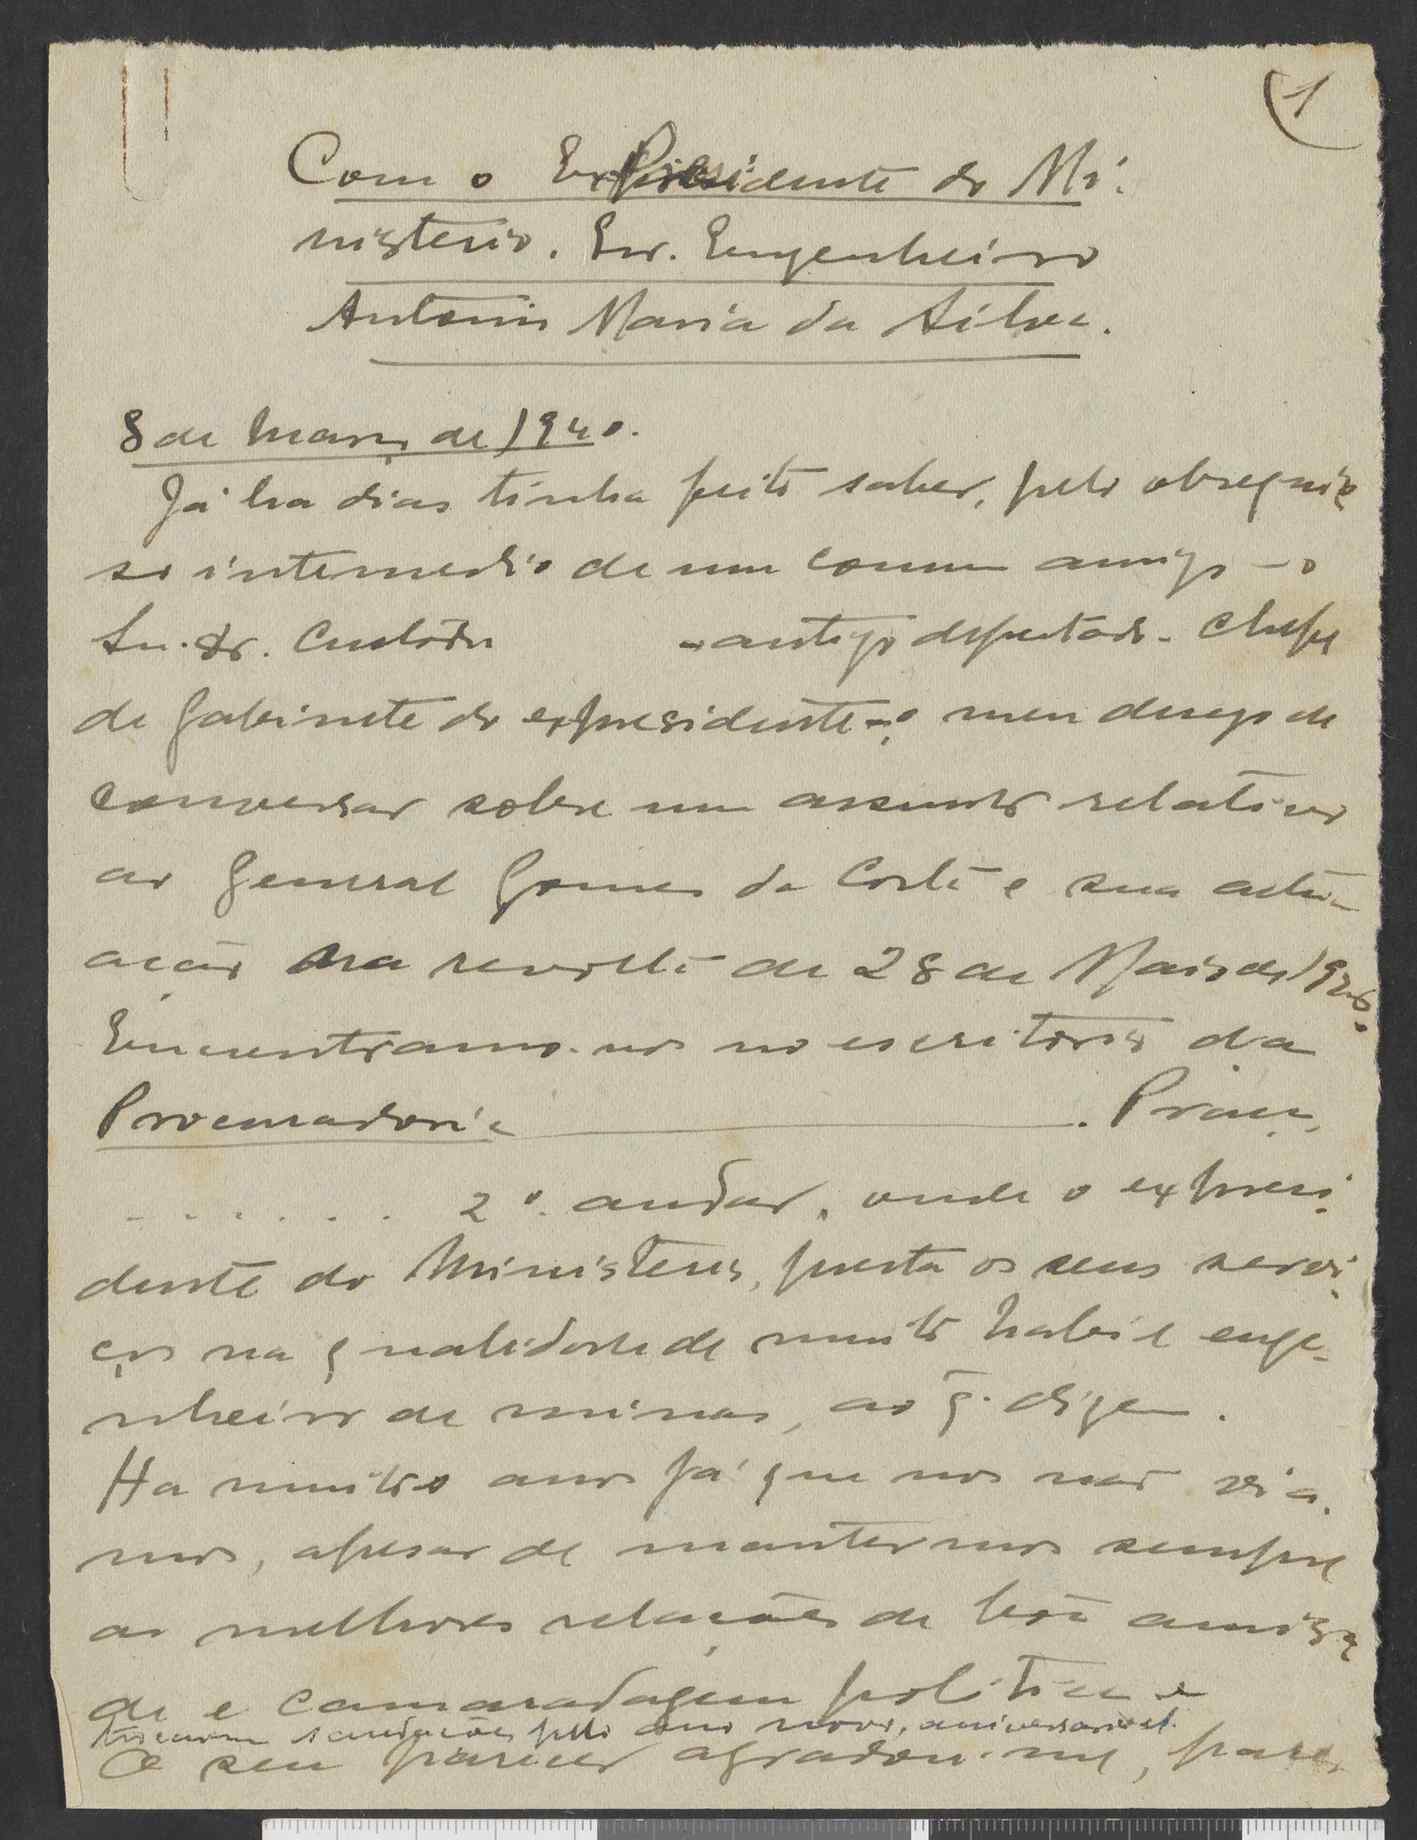 1
Com o ExPresidente do Mi-
nisterio. Enr. Engenheiro
Antonio Maria da Silva.
8 de Março de 1940.
Já ha dias tinha feito saber, pelo obsequio
so intermedio de um comum amigo - o
Sn. Dr. Custodio - antigo deputado - Chefe
de gabinete do expresidente - o meu desejo de
conversar sobre um assunto relativo
ao General Gomes da Costa e sua actu-
ação na revolta de 28 de Maio de 1926.
Encontramo-nos no escritorio da
Procuradoria . Praça,
. . . . . . . 2º andar, onde o expresi-
dente do Ministerio, presta os seus servi-
ços na qualidade de muito habil enge-
nheiro de minas, ao q. dizem.
Ha muitos anos já que nos não via-
mos, apesar de mantermos sempre
as melhores relações de boa amiza
de e camaradagem politica e
trocarem saudações pelo ano novo, aniversario
O seu parecer agradou-me, pare